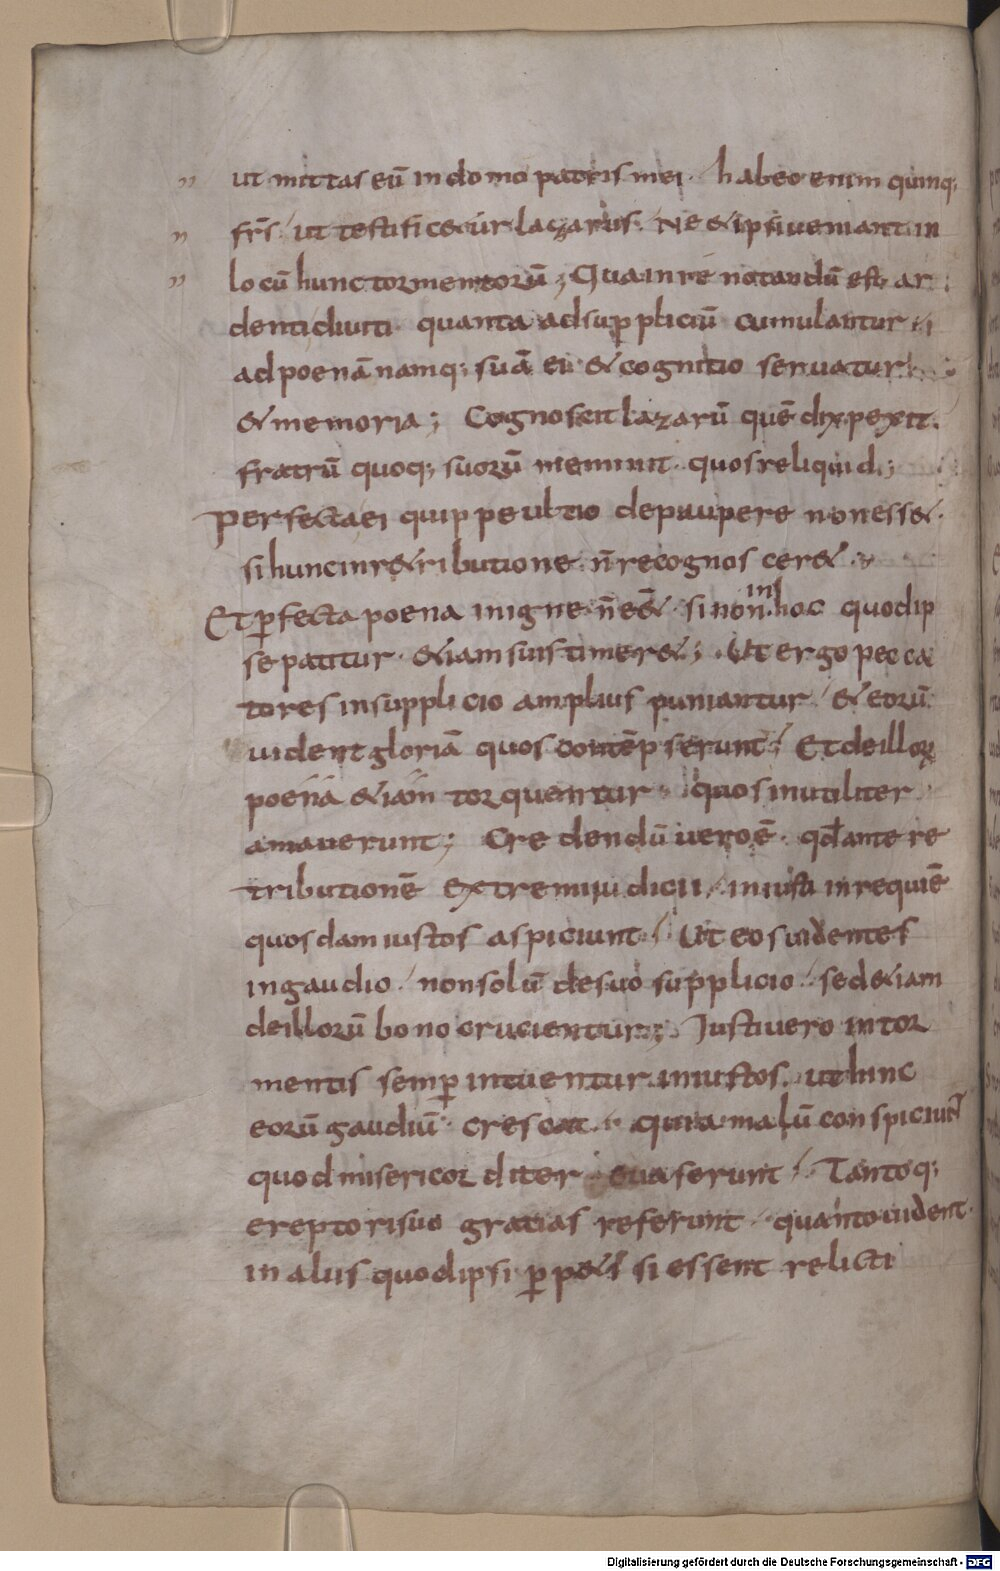 ut mittas eū in domo patris mei · habeo enim quinq;
fr̄s · ut testific&ur lazarus · Ne & ipsi ueniant in
locū hunc tormentorū ; Qua in re notandū est ar
denti diuiti · quanta ad supppliciū cumulantur ·
ad poenā namq; suā ei & cognitio seruatur
& memoria ; Cognoscit lazarū quē dixpexit ·
fratrū quoq; suorū meminit · quos reliquid ;
Perfecta ei quippe ultio de paupere non ess& ·
si hunc in r&ributione n̄ recognoscer& ·
Et p̄fecta poena in igne n̄ e&̄ · si non in hoc quod ip
se patitur · &iam suis timer& ; Ut ergo pecca
tores in supplicio amplius puniantur · & eorū
uident gloriā quos contēpserunt ; Et de illorꝝ
poena &iam torquentur · quos inutiliter
amauerunt ; Credendū uero ē · qđ ante re
tributionē extremi iudicii · iniusti in requiē
quosdam iustos aspiciunt · Ut eos uidentes
in gaudio · non solū de suo supplicio · sed &iam
de illorū bono crucientur ; Iusti uero in tor
mentis semp̄ intuentur iniustos · ut hinc
eorū gaudiū · crescat · quia malū conspiciunt
quod misericorditer euaserunt · Tantoq;
ereptori suo gratias referunt · quanto uident
in aliis quod ipsi p̄p&i si essent relicti
Digitalisierung gefördert durch die Deutsche Forschungsgemeinschaft - DFG